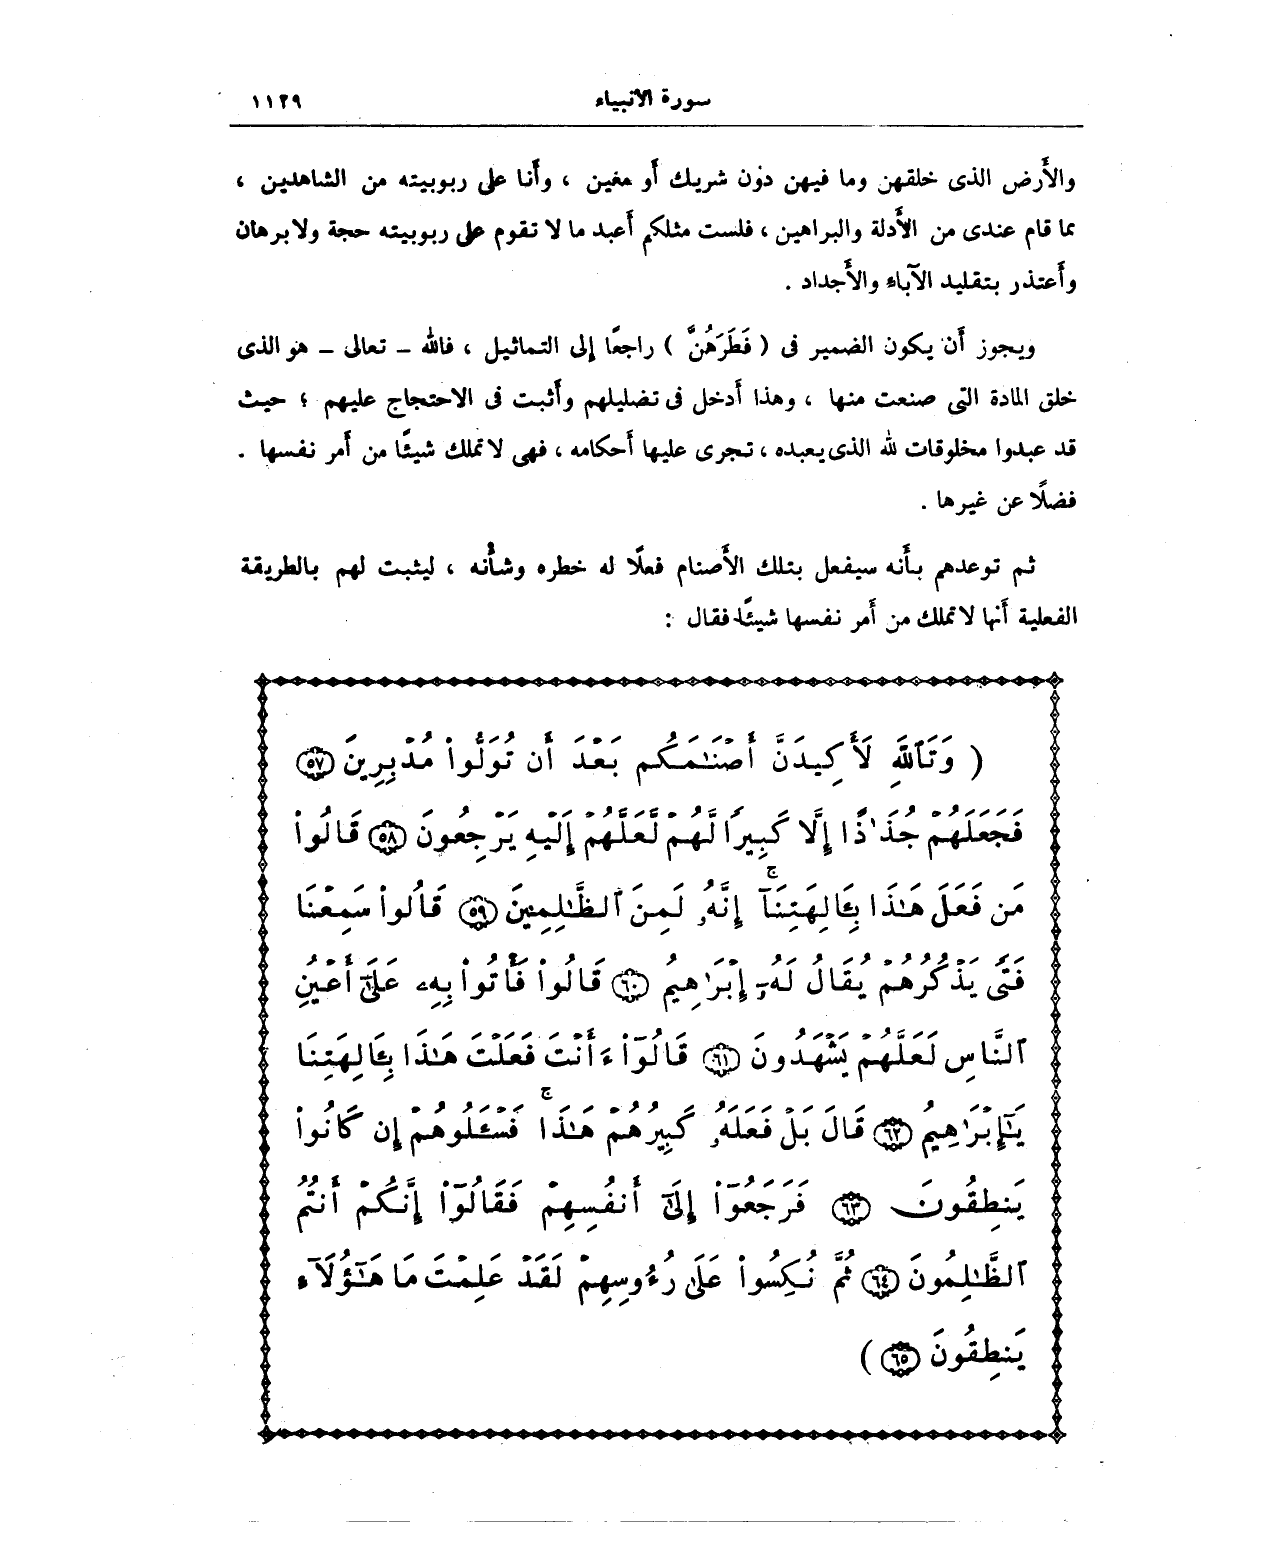 سورة الأنبياء ١١٢٩
والأرض الذى خلقهن وما فيهن دون شريك أو معين ، وأنا على ربوبيته من الشاهدين ،
بما قام عندى من الأدلة والبراهين ، فلست مثلكم أعبد ما لا تقوم على ربوبيته حجة ولا برهان
وأعتذر بتقليد الآباء والأجداد .
ويجوز أن يكون الضمير فى ( فَطَرَهُنَّ ) راجعًا إلى التماثيل ، فالله – تعالى – هو الذى
خلق المادة التى صنعت منها ، وهذا أدخل فى تضليلهم وأثبت فى الاحتجاج عليهم ؛ حيث
قد عبدوا مخلوقات لله الذى يعبده ، تجرى عليها أحكامه ، فهى لا تملك شيئًا من أمر نفسها .
فضلًا عن غيرها .
ثم توعدهم بأنه سيفعل بتلك الأصنام فعلًا له خطره وشأنه ، ليثبت لهم بالطريقة
الفعلية أنها لا تملك من أمر نفسها شيئًا فقال :
( وَتَٱللَّهِ لَأَكِيدَنَّ أَصْنَٰمَكُم بَعْدَ أَن تُوَلُّوا۟ مُدْبِرِينَ ٥٧
فَجَعَلَهُمْ جُذَٰذًا إِلَّا كَبِيرًا لَّهُمْ لَعَلَّهُمْ إِلَيْهِ يَرْجِعُونَ ٥٨ قَالُوا۟
مَن فَعَلَ هَٰذَا بِـَٔالِهَتِنَآ إِنَّهُۥ لَمِنَ ٱلظَّٰلِمِينَ ٥٩ قَالُوا۟ سَمِعْنَا
فَتًى يَذْكُرُهُمْ يُقَالُ لَهُۥٓ إِبْرَٰهِيمُ ٦٠ قَالُوا۟ فَأْتُوا۟ بِهِۦ عَلَىٰٓ أَعْيُنِ
ٱلنَّاسِ لَعَلَّهُمْ يَشْهَدُونَ ٦١ قَالُوٓا۟ ءَأَنتَ فَعَلْتَ هَٰذَا بِـَٔالِهَتِنَا
يَٰٓإِبْرَٰهِيمُ ٦٢ قَالَ بَلْ فَعَلَهُۥ كَبِيرُهُمْ هَٰذَا فَسْـَٔلُوهُمْ إِن كَانُوا۟
يَنطِقُونَ ٦٣ فَرَجَعُوٓا۟ إِلَىٰٓ أَنفُسِهِمْ فَقَالُوٓا۟ إِنَّكُمْ أَنتُمُ
ٱلظَّٰلِمُونَ ٦٤ ثُمَّ نُكِسُوا۟ عَلَىٰ رُءُوسِهِمْ لَقَدْ عَلِمْتَ مَا هَٰٓؤُلَآءِ
يَنطِقُونَ ٦٥ )